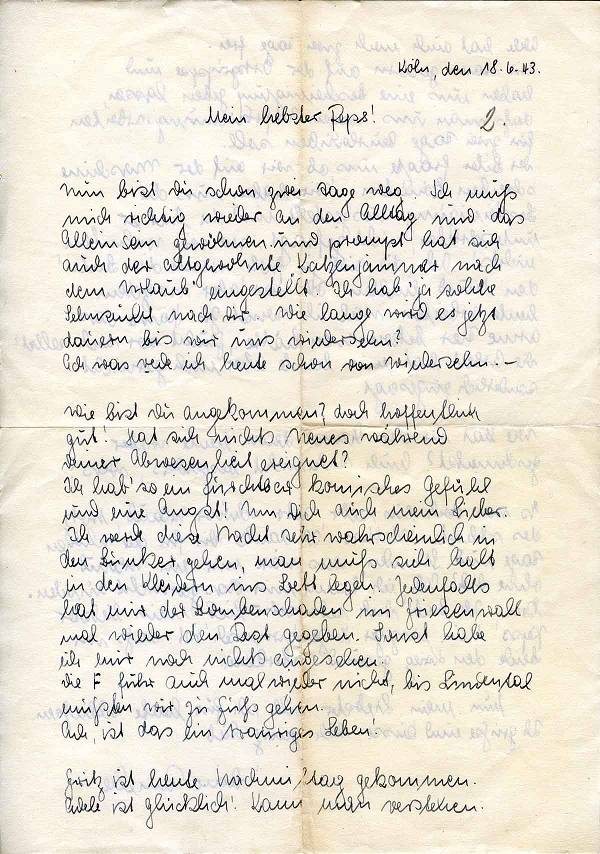 Köln, den 18.6.43.
Mein liebster Peps!
2.
Nun bist Du schon zwei Tage weg. Ich muß
mich richtig wieder an den Alltag und das
Alleinsein gewöhnen und prompt hat sich
auch der altgewohnte Katzenjammer nach
dem Urlaub eingestellt. Ich hab' ja solche
Sehnsucht nach Dir. Wie lange wird es jetzt
dauern bis wir uns wiedersehn?
Ach was rede ich heute schon von wiedersehn. –
Wie bist Du angekommen? doch hoffentlich
gut! Hat sich nichts Neues während
deiner Abwesenheit ereignet?
Ich hab' so ein furchtbar komisches Gefühl
und eine Angst! Um Dich auch mein Lieber.
Ich werde diese Nacht sehr wahrscheinlich in
den Bunker gehen, man muß sich halt
in den Kleidern ins Bett legen. Jedenfalls
hat mir der Bombenschaden im Friesenwall
mal wieder den Rest gegeben. Sonst habe
ich mir noch nichts angesehen.
die F fuhr auch mal wieder nicht, bis Lindental
mußten wir zu Fuß gehen.
Ach, ist das ein trauriges Leben!
Fritz ist heute Nachmittag gekommen.
Adele ist glücklich! Kann man verstehen.